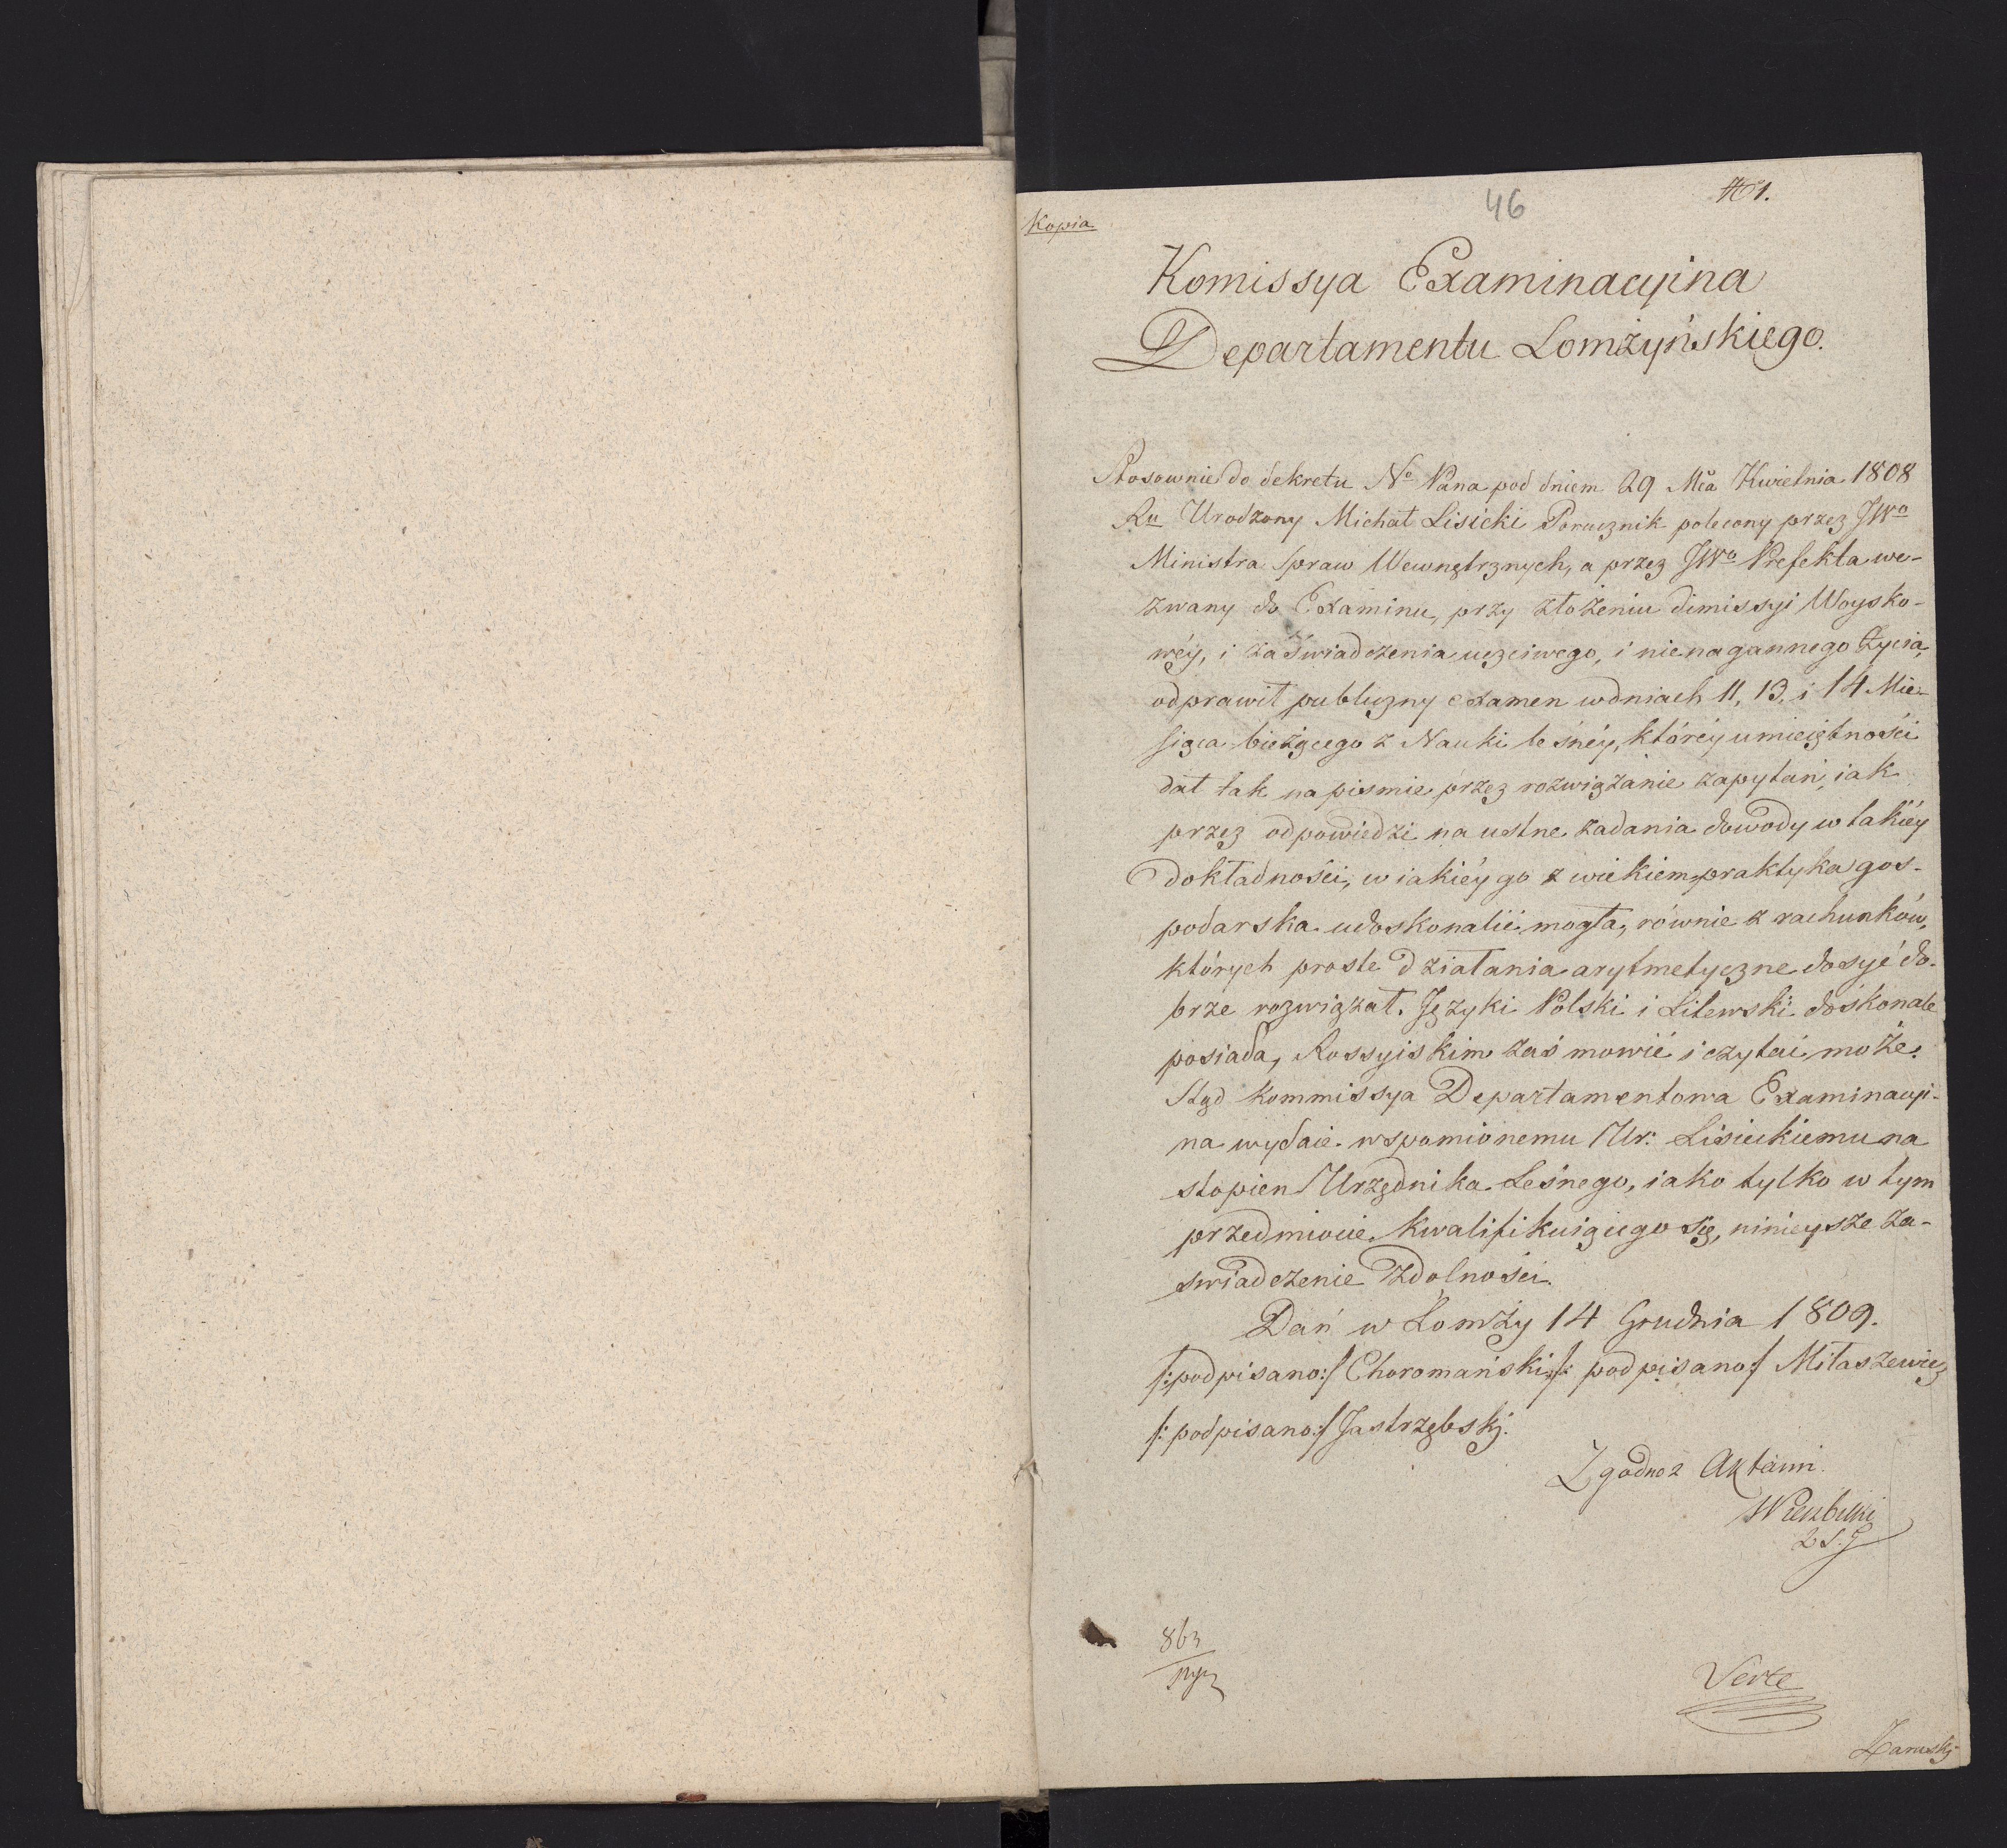 46
№ 1.
Kopia
Komissya Examinacyina
Departamentu Łomżyńskiego.
Stosownie do dekretu No Pana pod dniem 29 Mca Kwietnia 1808
Ru Urodzony Michał Lisicki Porucznik polecony przez JWo
Ministra Spraw Wewnętrznych, a przez JWo Prefekta we-
zwany do Examinu, przy złożeniu dimissyi Woysko-
wéy, i zaświadczenia uczciwego, i nienagannego życia,
odprawił publiczny examen w dniach 11, 13, i 14 Mie-
siąca bieżącego z Nauki leśnéy, któréy umieiętności
dał tak na pismie przez rozwiązanie zapytań, iak
przez odpowiedzi na ustne zadania dowody w takiéy
dokładności, w iakiéy go z wiekiem praktyka gos-
podarska udoskonalić mogła, równie z rachunków,
których proste działania arytmetyczne dosyć do-
brze rozwiązał. Języki Polski i Litewski doskonale
posiada, Rossyiskim zaś mowić i czytać może.
Stąd Kommissya Departamentowa Examinacyi-
na wydaie wspomionemu Ur: Lisieckiemu na
stopien Urzędnika Leśnego, iako tylko w tym
przedmiocie kwalifikuiącego się, ninieysze za-
swiadczenie zdolności.
Dań w Łomży 14 Grudnia 1809.
/:podpisano:/ Choromański /: podpisano/ Miłaszewicz
/: podpisano:/ Jastrzębski.
Zgodno z Aktami
Wierzbicki
863
Verte